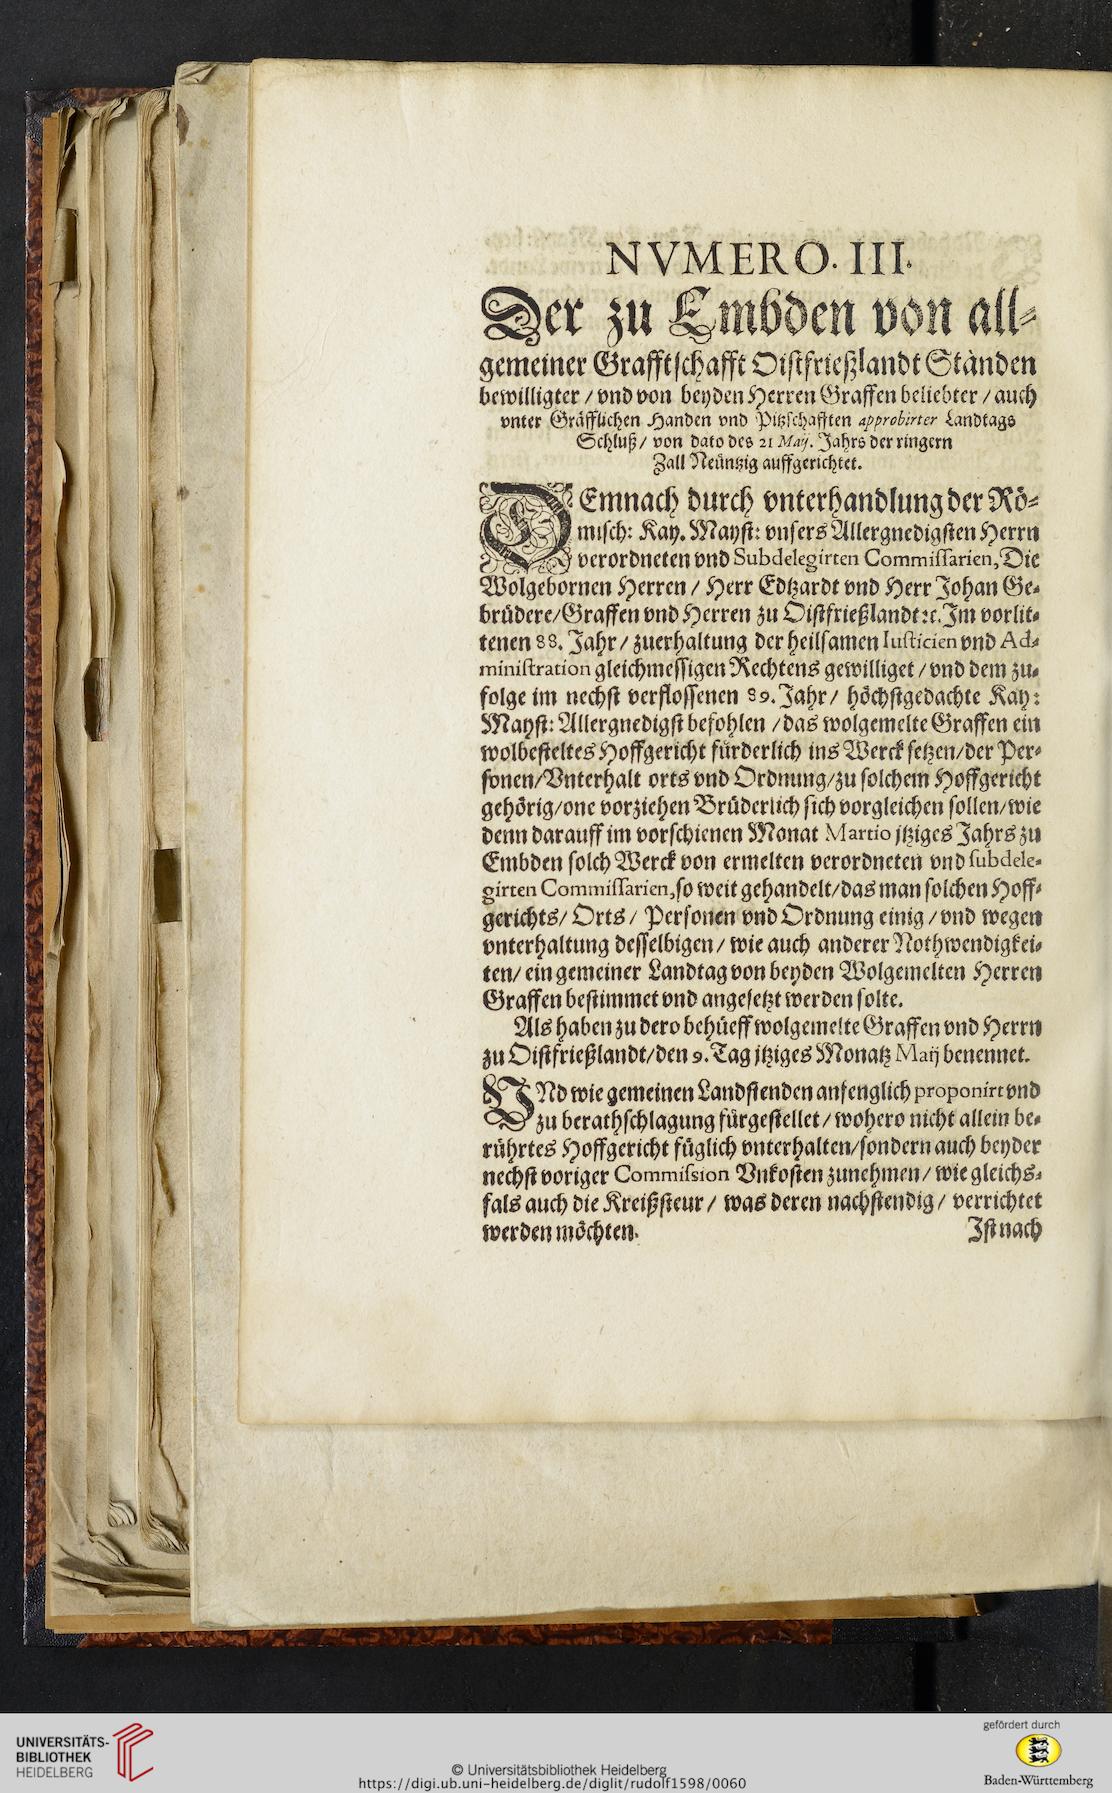 NVMERO. III.
Der zu Embden von all⸗
gemeiner Grafftschafft Oistfrießlandt Ständen
bewilligter / vnd von beyden Herren Graffen beliebter / auch
vnter Gräfflichen Handen vnd Pitzschafften approbirter Landtags
Schluß / von dato des 21 Maij. Jahrs der ringern
Zall Neüntzig auffgerichtet.
DEmnach durch vnterhandlung der Rö⸗
misch: Kay. Mayst: vnsers Allergnedigsten Herrn
verordneten vnd Subdelegirten Commissarien, Die
Wolgebornen Herren / Herr Edtzardt vnd Herr Johan Ge⸗
brüdere/Graffen vnd Herren zu Oistfrießlandt ꝛc. Im vorlit⸗
tenen 88. Jahr / zuerhaltung der heilsamen Iusticien vnd Ad⸗
ministration gleichmessigen Rechtens gewilliget / vnd dem zu⸗
folge im nechst verflossenen 89. Jahr / höchstgedachte Kay:
Mayst: Allergnedigst befohlen / das wolgemelte Graffen ein
wolbesteltes Hoffgericht fürderlich ins Werck setzen/der Per⸗
sonen/Vnterhalt orts vnd Ordnung/zu solchem Hoffgericht
gehörig/one vorziehen Brüderlich sich vorgleichen sollen/wie
denn darauff im vorschienen Monat Martio jtziges Jahrs zu
Embden solch Werck von ermelten verordneten vnd subdele⸗
girten Commissarien, so weit gehandelt/das man solchen Hoff⸗
gerichts/ Orts / Personen vnd Ordnung einig / vnd wegen
vnterhaltung desselbigen / wie auch anderer Nothwendigkei⸗
ten/ ein gemeiner Landtag von beyden Wolgemelten Herren
Graffen bestimmet vnd angesetzt werden solte.
Als haben zu dero behüeff wolgemelte Graffen vnd Herrn
zu Oistfrießlandt/den 9. Tag jtziges Monatz Maij benennet.
VNd wie gemeinen Landstenden anfenglich proponirt vnd
zu berathschlagung fürgestellet / wohero nicht allein be⸗
rührtes Hoffgericht füglich vnterhalten/sondern auch beyder
nechst voriger Commission Vnkosten zunehmen / wie gleichs⸗
fals auch die Kreißsteur / was deren nachstendig / verrichtet
werden möchten.
Ist nach
UNIVERSITÄTS-
BIBLIOTHEK
HEIDELBERG
© Universitätsbibliothek Heidelberg
https://digi.ub.uni-heidelberg.de/diglit/rudolf1598/0060
gefördert durch
Baden-Württemberg